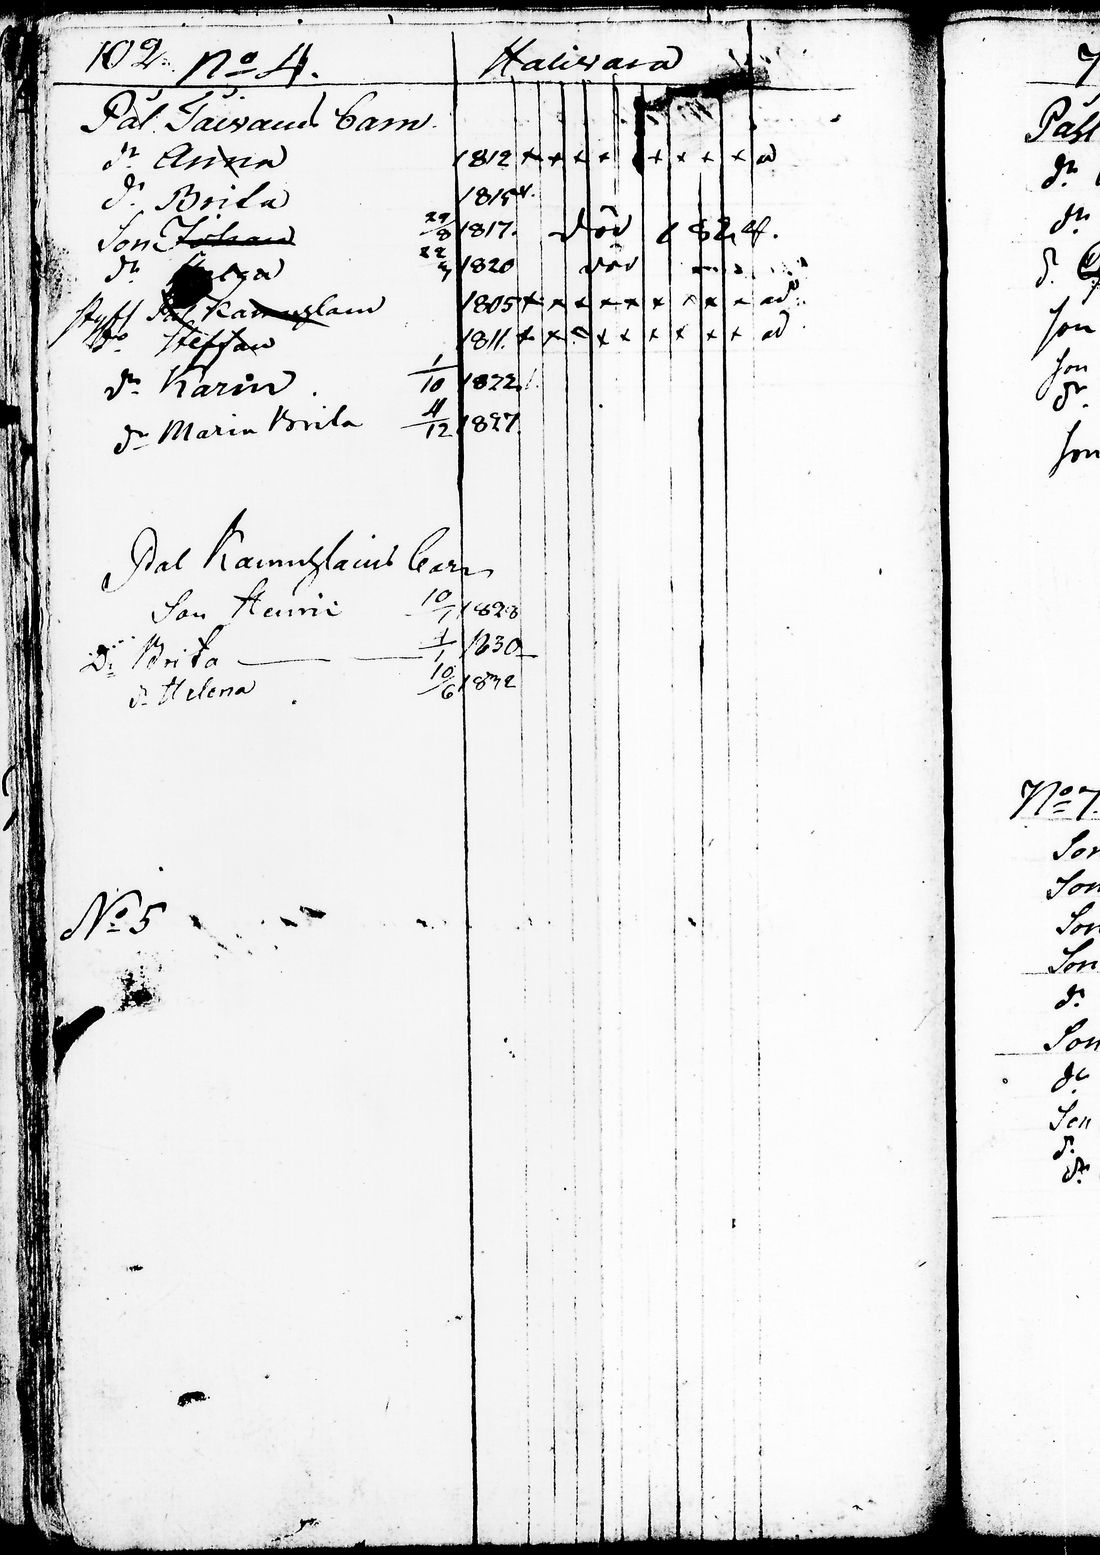 102. No 4. Haliwara
Pål Taivains Barn.
dr Anna 1812 + + + + + + + + a
dr Brita 1815
Son Johan 29/8 1817. död 1824.
dr 1820 död
Styff Pål Kamuglain 1805 + + + + + + + + +
do Steffan 1811. + + + + + + + + a
dr Karin. 1/10 1822.
dr Maria Brita 4/12 1827
Pål Kamuglains Barn
Son Henric 10/ 1828
Dr Brita 1/1 1830
dr Helena 10/6 1832
No 5
Pål
dr
dr
d.
Son
Son
dr.
Son
No 7.
Son
Son
Son
Son
dr
Son
dr
Son
d.
dr